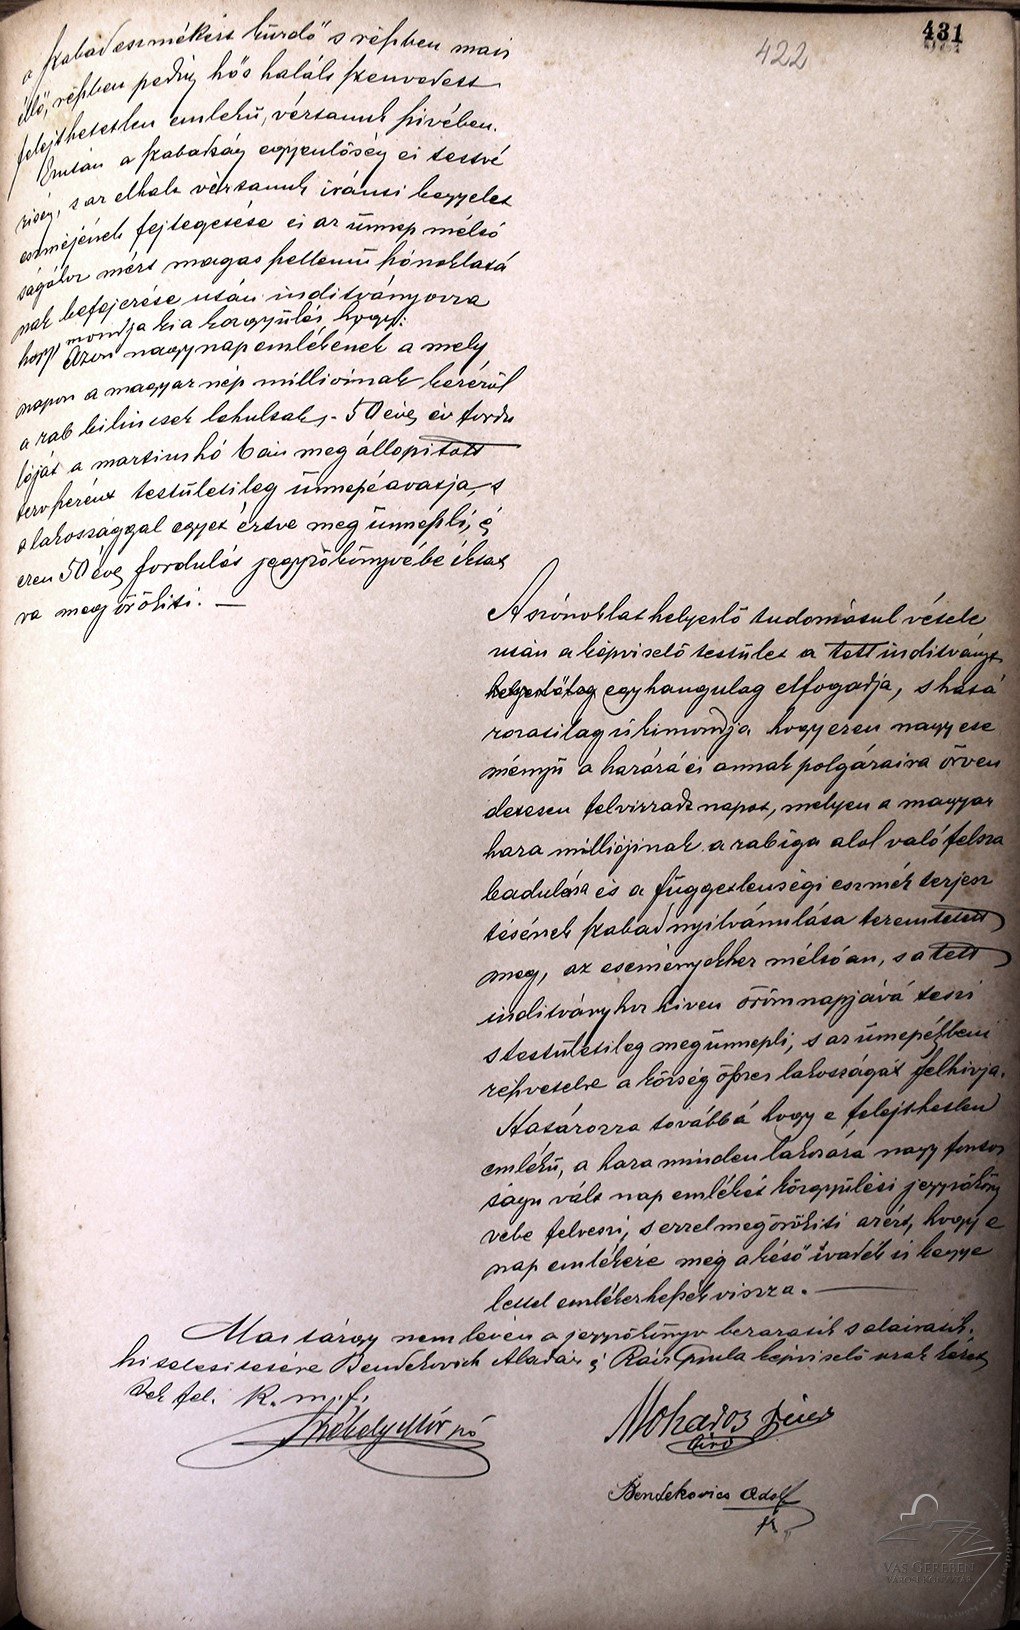 431
422
a szabad eszmékért küzdő s részben mais
élő, részben pedig hős halált szenvedett
felejthetetlen emlékü, vértanuk hivében.
Ezután a szabadság egyenlőség és testvé
riség, s az elhalt vértanuk iránti kegyelet
eszméjének fejtegetése és az ünnep méltó
ságához mért magas szellemü szónoklatá
nak befejezése után inditványozza
hogy mondja ki a közgyülés hogy:
Azon nagy nap emlékének a mely
napon a magyar nép millióinak kezéről
a rab bilincsek lehultak, - 50 éves év fordu
lóját a martius hó 6 án meg állapitott
terv szerént testületileg ünneppé avatja, s
a lakossággal egyet értve meg ünnepli, s
ezen 50 éves fordulót jegyzőkönyvébe iktat
va meg örökiti. —
A szónoklat helyeslő tudomásul vétele
után a képviselő testület a tett inditványt
helyeslőleg egyhangulag elfogadja, s hatá
rozatilag is kimondja hogy ezen nagy ese
ményü a hazára és annak polgáraira örven
detesen felvirradt napot, melyen a magyar
haza milliójinak a rabiga alol való felsza
badulása és a függetlenségi eszmék terjesz
tésének szabad nyilvánulása teremtetett
meg, az eseményekhez méltóan, s a tett
inditványhoz hiven öröm napjává teszi
s testületileg megünnepli, s az ünnepélybeni
részvételre a község összes lakosságát felhivja.
Határozza továbbá hogy e felejthetlen
emlékü, a haza minden lakosára nagy fontos
ságu vált nap emlékét közgyülési jegyzőköny
vébe felveszi, s ezzel megörökiti azért, hogy e
nap emlékére még a késő ivadék is kegye
lettel emlékezhessék vissza. —
Mas tárgy nem lévén a jegyzőkönyv bezáratik s aláiratik,
hitelesitésére Bendekovich Aladár és Ráis Gyula képviselő urak kéret
tek fel. K. m. f.
Székely Mór
Mokados
biró
Bendekovics Adolf
VAS GEREBEN
VÁROSI KÖNYVTÁR